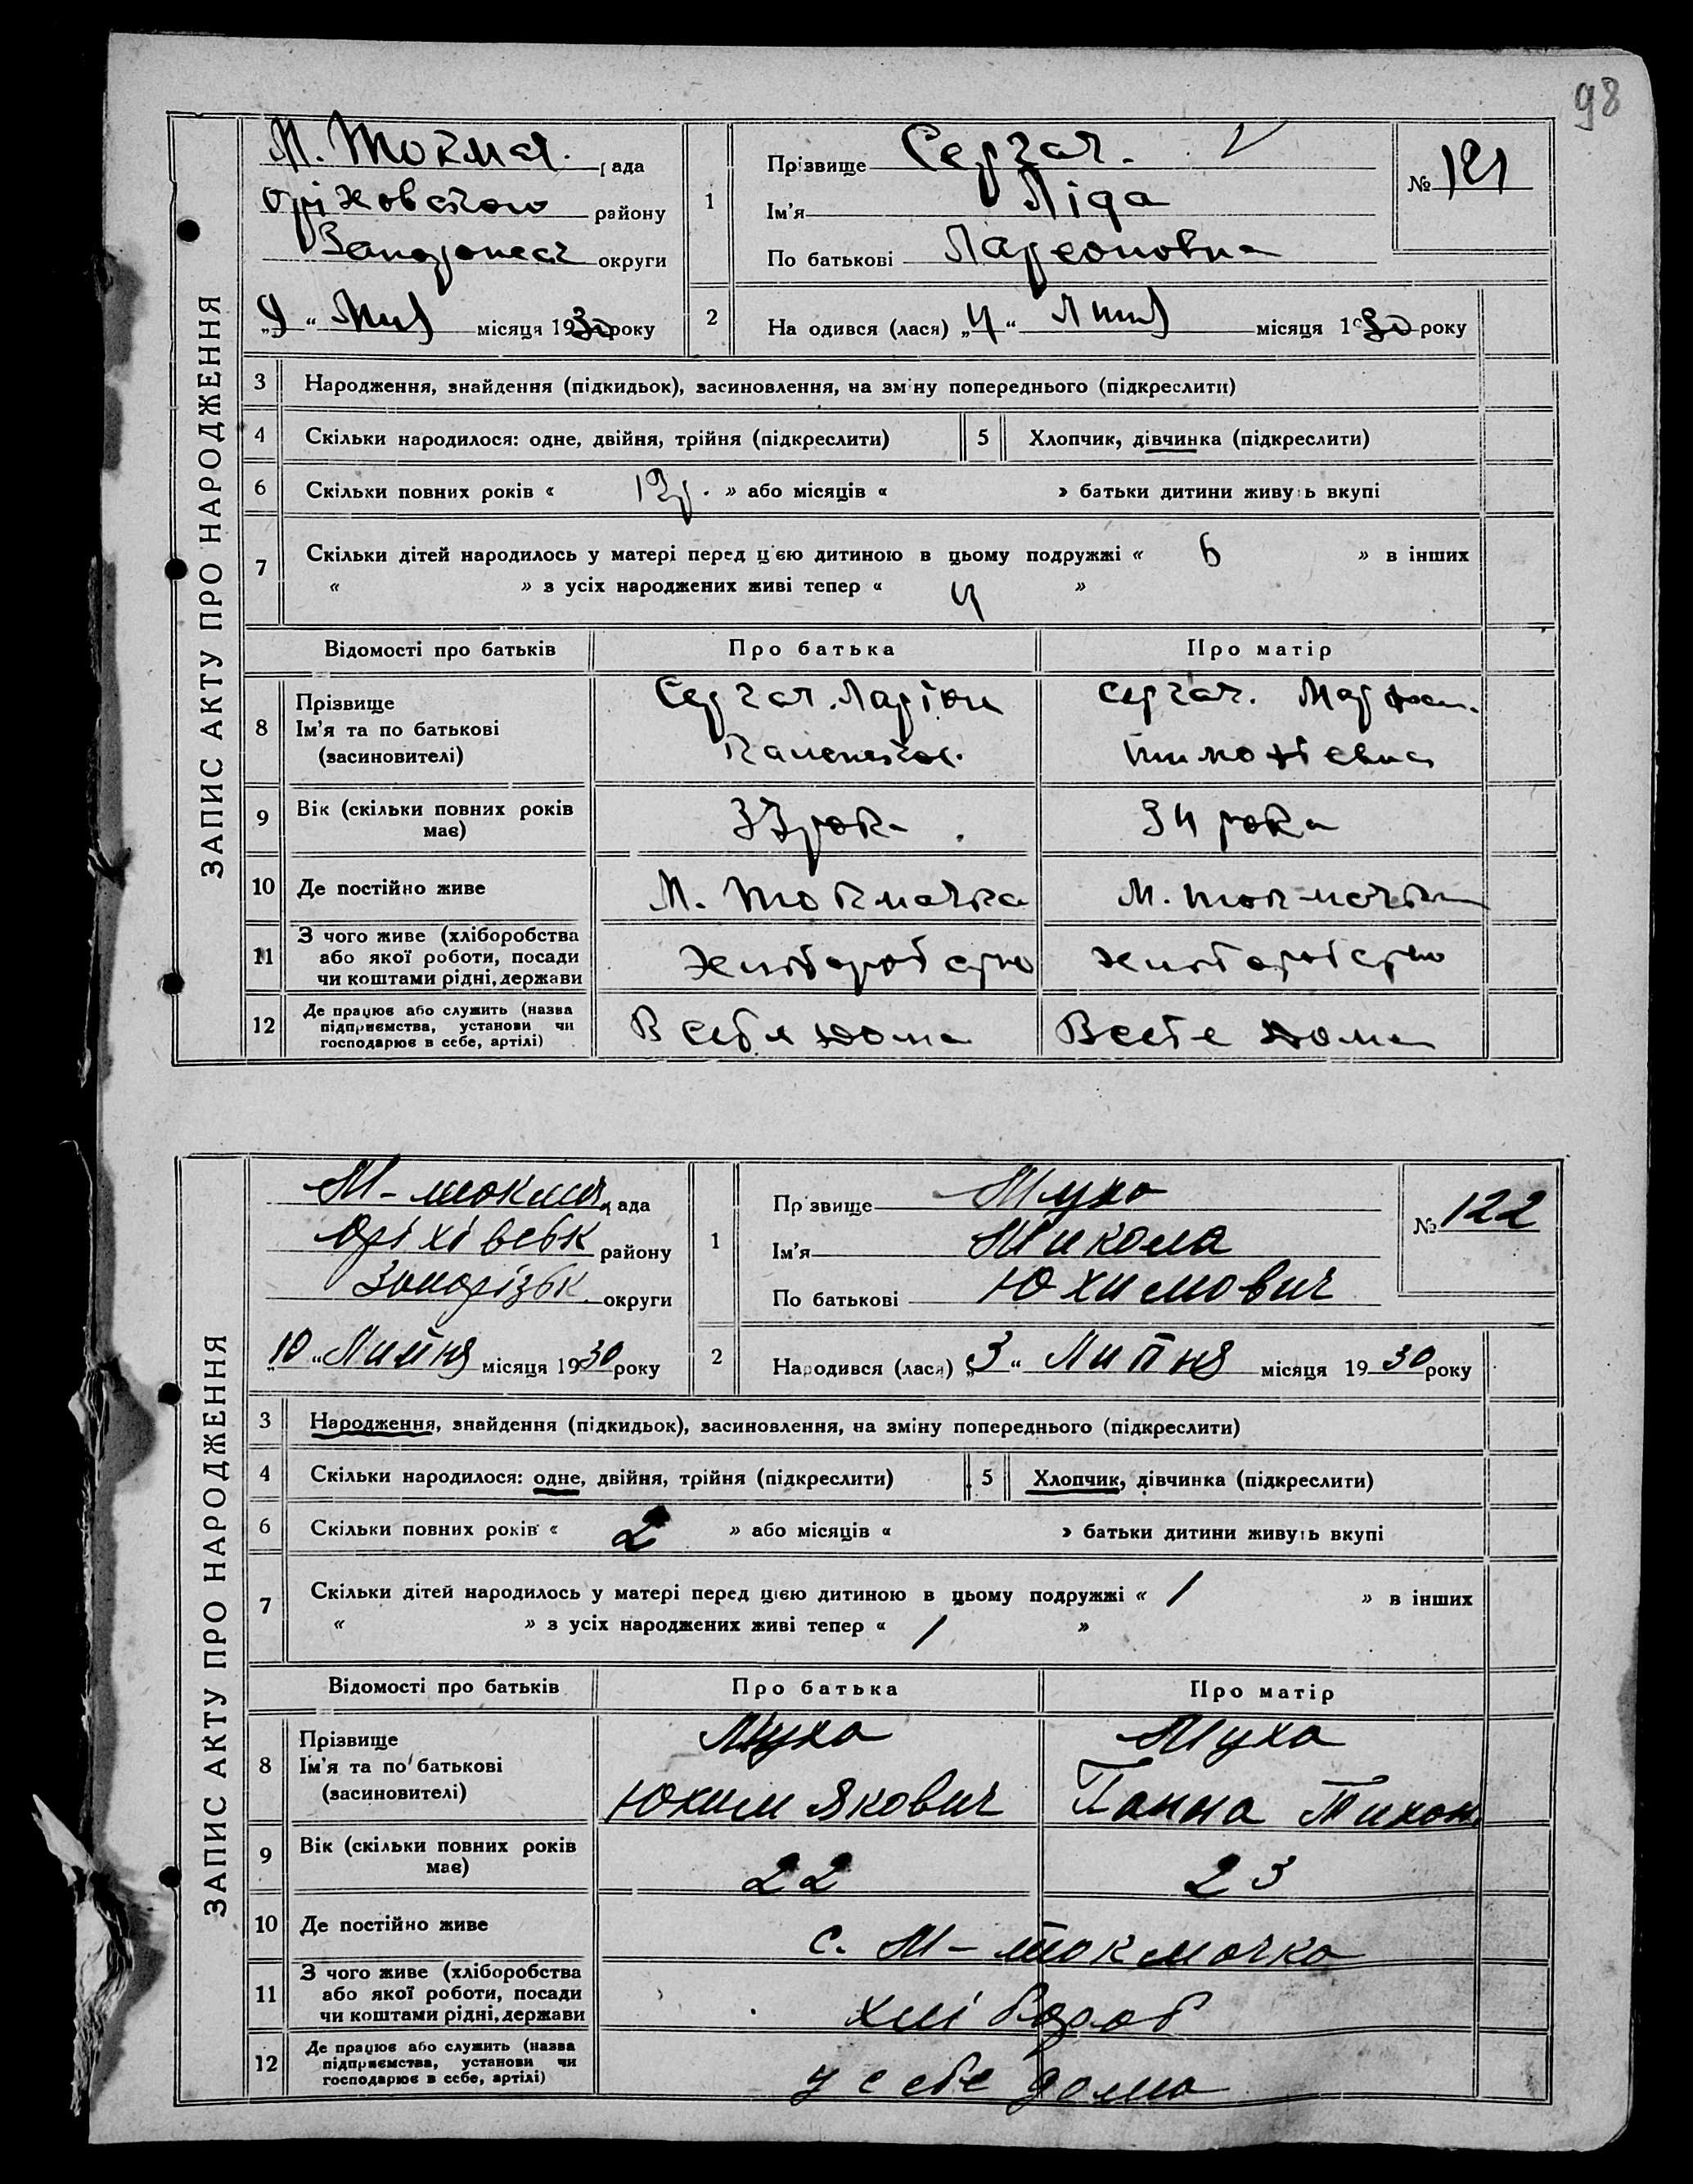 98
ЗАПИС АКТУ ПРО НАРОДЖЕННЯ
М. Токмач. рада
Оріховского району
округи
„9“ місяця 1930 року
1
Прізвище Сергач.
Ім'я Ліда
По батькові Ларионовна
№ 121
2
На одився (лася) „4“ місяця 1930 року
3 Народження, знайдення (підкидьок), засиновлення, на зміну попереднього (підкреслити)
4 Скільки народилося: одне, двійня, трійня (підкреслити)
5 Хлопчик, дівчинка (підкреслити)
6 Скільки повних років « » або місяців « » батьки дитини живуть вкупі
7 Скільки дітей народилось у матері перед цією дитиною в цьому подружжі « 6 » в інших
« » з усіх народжених живі тепер « 4 »
Відомості про батьків Про батька Про матір
8 Прізвище
Ім'я та по батькові
(засиновителі)
Сергач Ларіон
Сергач.
Тимофіевна
9 Вік (скільки повних років має)
37 рока
34 рока
10 Де постійно живе
М. Токмачка
М. Токмачка
11 З чого живе (хліборобства
або якої роботи, посади
чи коштами рідні, держави
12 Де працює або служить (назва
підприємства, установи чи
господарює в себе, артілі)
В себя дома
В себе дома
ЗАПИС АКТУ ПРО НАРОДЖЕННЯ
М-токмач рада
Оріхівськ району
Запорізьк. округи
„10“ Липня місяця 1930 року
1
Прізвище Муха
Ім'я Микола
По батькові Юхимович
№ 122
2
Народився (лася) „3“ Липня місяця 1930 року
3 Народження, знайдення (підкидьок), засиновлення, на зміну попереднього (підкреслити)
4 Скільки народилося: одне, двійня, трійня (підкреслити)
5 Хлопчик, дівчинка (підкреслити)
6 Скільки повних років « 2 » або місяців « » батьки дитини живуть вкупі
7 Скільки дітей народилось у матері перед цією дитиною в цьому подружжі « 1 » в інших
« » з усіх народжених живі тепер « 1 »
Відомості про батьків Про батька Про матір
8 Прізвище
Ім'я та по батькові
(засиновителі)
Муха
Юхим Якович
Муха
Ганна Тихон.
9 Вік (скільки повних років має)
22
23
10 Де постійно живе
с. М-токмачка
11 З чого живе (хліборобства
або якої роботи, посади
чи коштами рідні, держави
хлібороб
12 Де працює або служить (назва
підприємства, установи чи
господарює в себе, артілі)
у себе дома